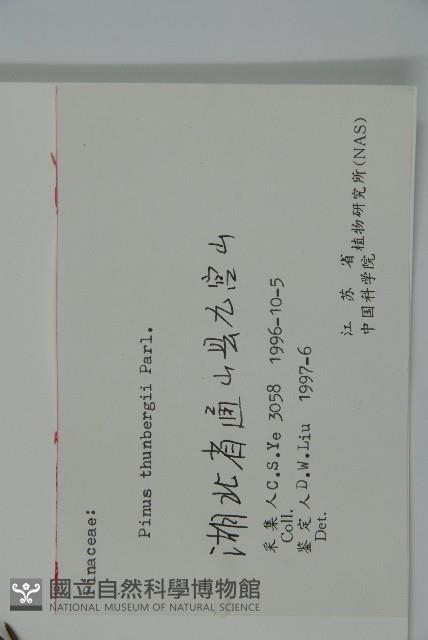 Pinaceae:
Pinus thunbergii Parl.
湖北省通山县九宫山
采集人 C.S.Ye 3058 1996-10-5
Coll.
鉴定人 D.W.Liu 1997-6
Det.
江苏省植物研究所(NAS)
中国科学院
國立自然科學博物館
NATIONAL MUSEUM OF NATURAL SCIENCE